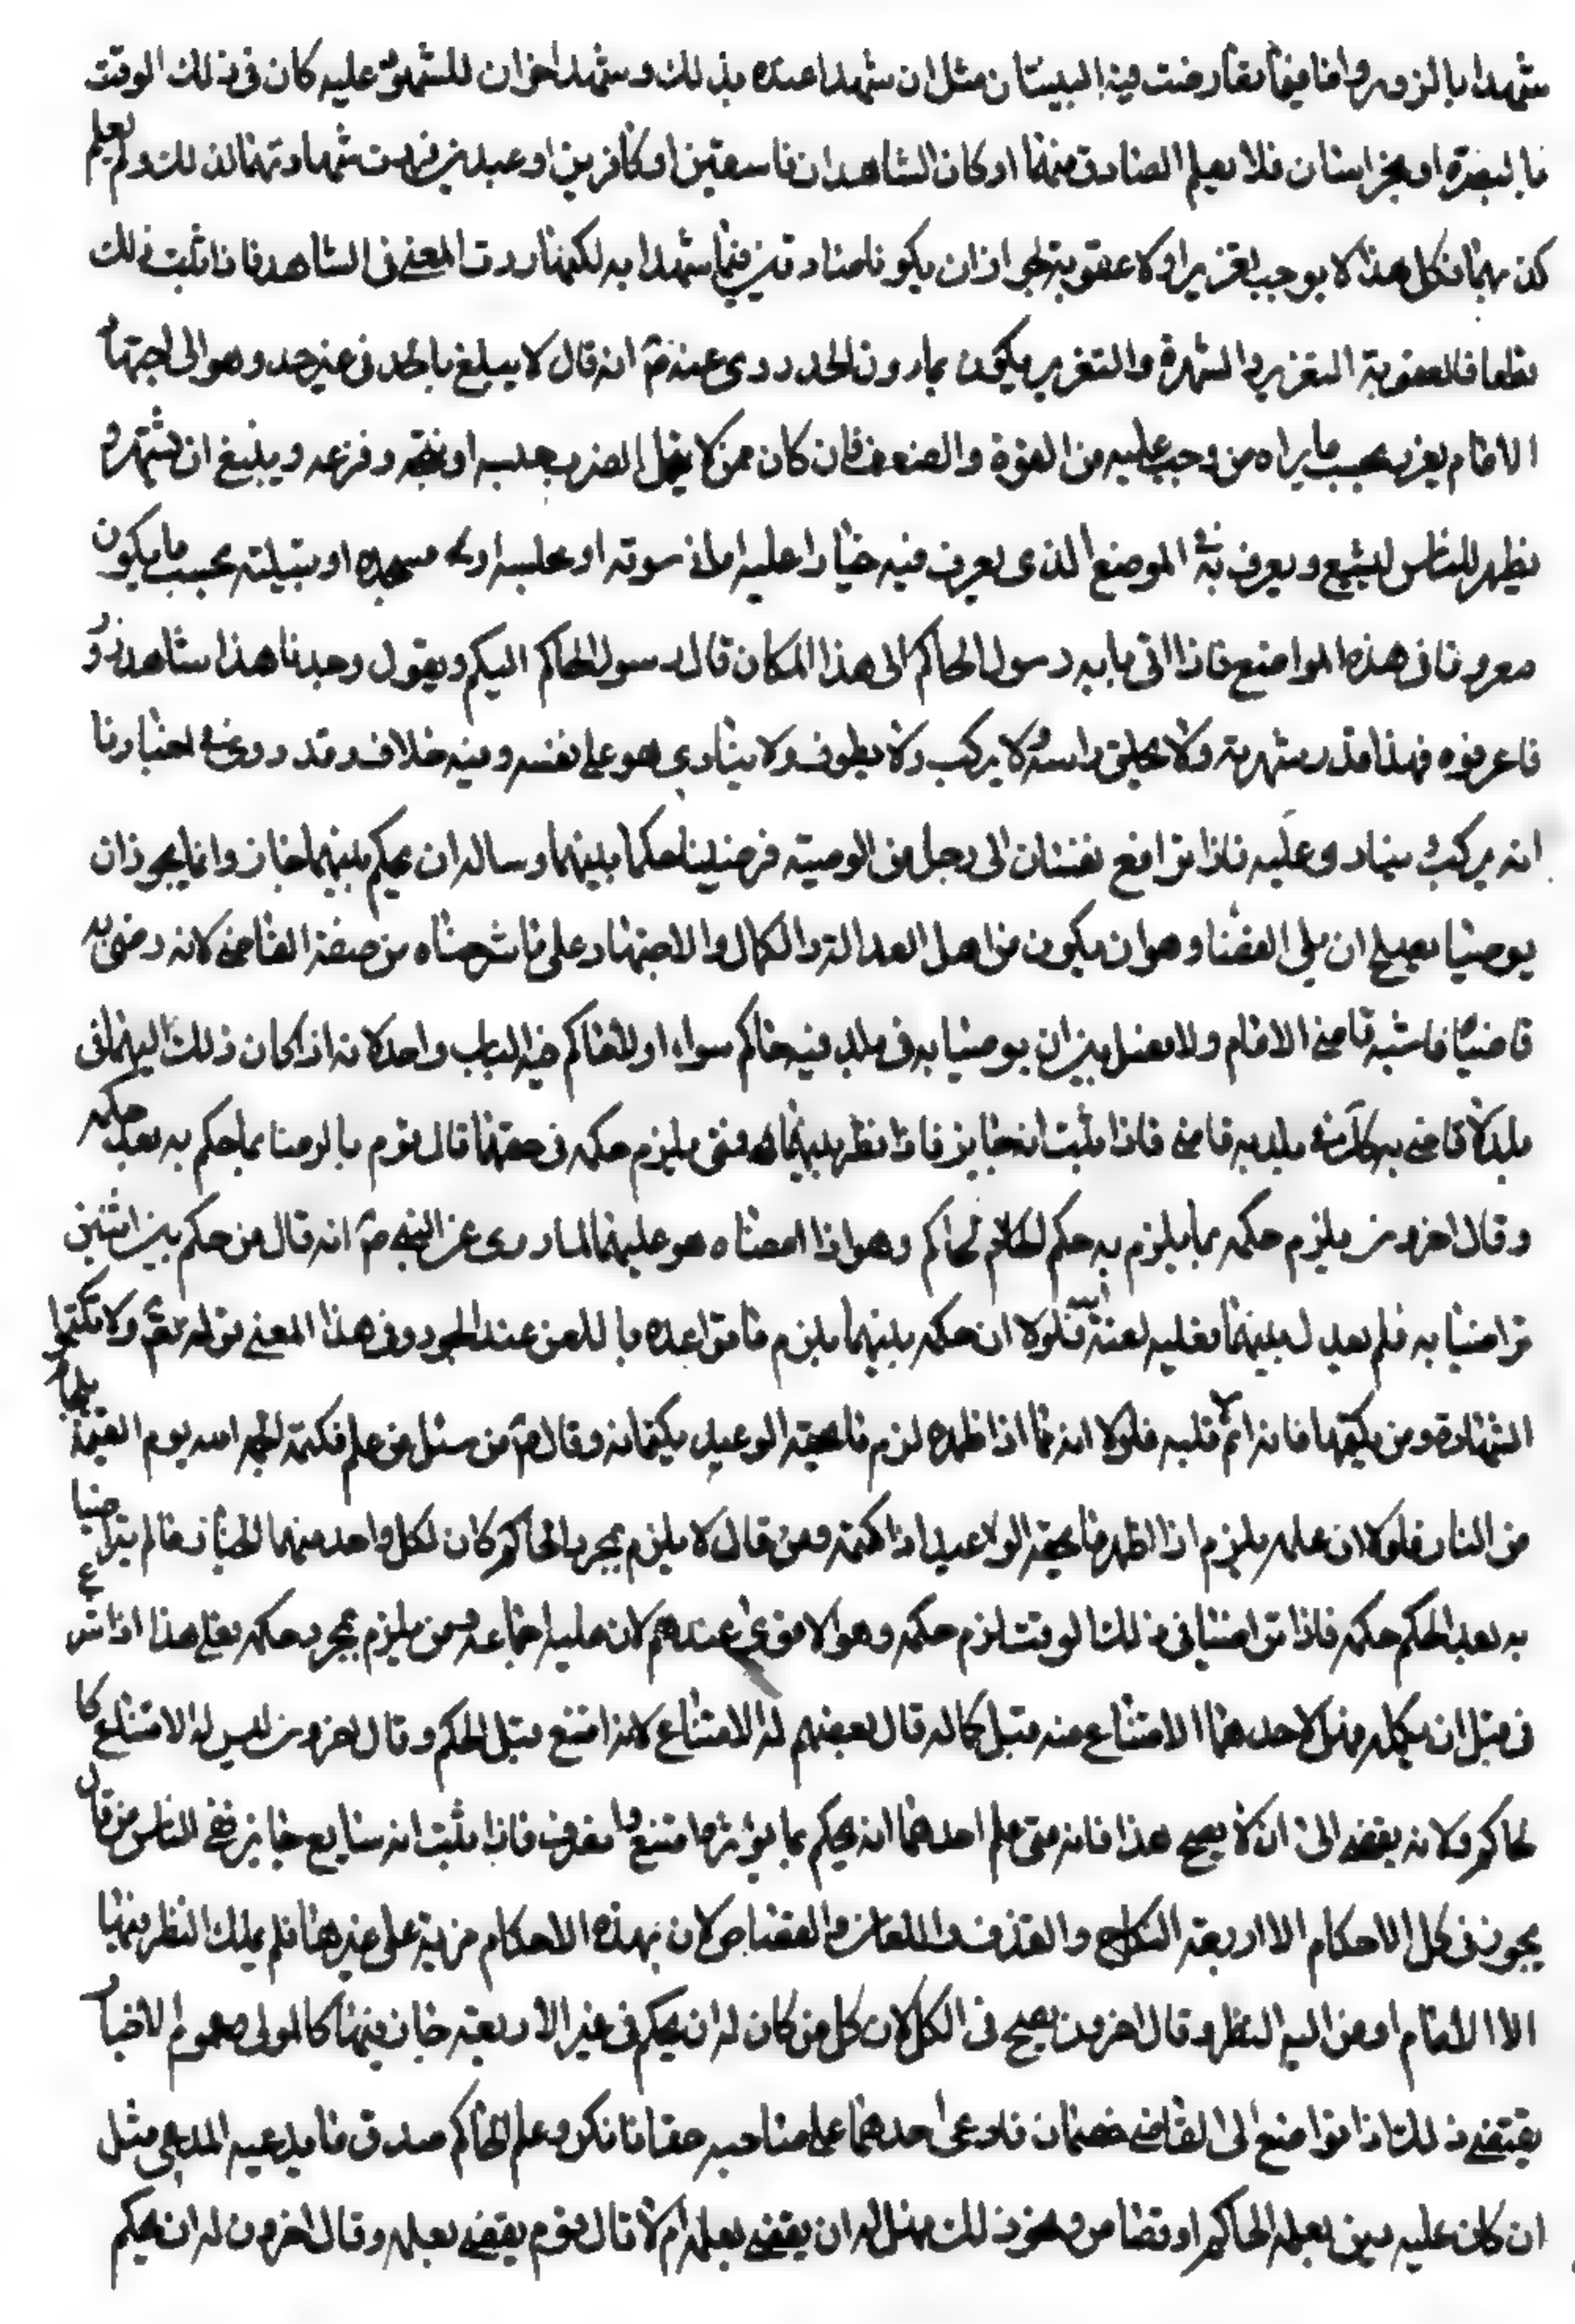 شهدا بالزور واما فيما تعارضت فيه البينتان مثل ان شهدا عنده بذلك وشهد اخران للمشهود عليه كان في ذلك الوقت
بالبصرة او بخراسان فلا يعلم الصادق منهما او كان الشاهدان فاسقين او كافرين او عبدين فردت شهادتهما لذلك ولم يعلم
كذبهما فكل هذا لا يوجب تعزيرا ولا عقوبة لجواز ان يكونا صادقين فيما شهدا به لكنها ردت المعنى في الشاهد فاذا ثبت ذلك
قطعا فالعقوبة التعزير والشهرة والتعزير يكون بما دون الحد روى عنه ص انه قال لا يبلغ بالحد في غير حد وهو الى اجتهاد
الامام يعزر بحسب ما يراه من وجب عليه من القوة والضعف فان كان ممن لا يحتمل الضرب حبسه او وفزعه وينبغي ان يشهره و
يظهر للناس ليشيع ويعرف به الموضع الذي يعرف فيه اهل سوقه او او مسجده او قبيلته بحسب ما يكون
معروفا في هذه المواضع فاذا اتى بابه رسول الحاكم الى هذا المكان قال رسول الحاكم اليكم ويقول وجدنا هذا شاهد زور
فاعرفوه فهذا قدر شهرته ولا يحلق راسه ولا يركب ولا يطوف ولا ينادى هو على نفسه وفيه خلاف وقد روى في اخبارنا
انه يركب وينادى عليه فاذا ترافع نفسان الى رجل من الرعية فرضيا به حكما بينهما وسالاه ان يحكم بينهما جاز وانما يجوز ان
يرضيا بمن يصلح ان يلي القضا وهو ان يكون من اهل العدالة والكمال والاجتهاد على ما شرحناه من صفة القاضي لانه رضى به
قاضيا فاشبه قاضي الامام ولا فصل بين ان يرضيا به في بلد فيه حاكم سواه او لا حاكم فيه الباب واحد لانه اذا كان ذلك اليهما في
بلد لا قاضي به كذلك في بلد به قاضي فاذا ثبت انه جايز فاذا نظر بينهما فمتى يلزم حكمه في حقهما قال قوم بالرضا بما حكم به بعد حكمه
وقال اخرون يلزم حكمه بما يلزم به حكم الحاكم وهو اذا امضاه هو عليهما لما روى عن النبي ص انه قال من حكم بين اثنين
تراضيا به فلم يعدل بينهما فعليه لعنة الله فلولا ان حكمه بينهما يلزم ما تواعده باللعن عند الجور وفي هذا المعنى قوله تعالى ولا تكتموا
الشهادة ومن يكتمها فانه اثم قلبه فلولا انه اذا اظهره لزم ما لحقه الوعيد بكتمانه وقال ص من سئل عن علم فكتمه الجمه الله يوم القيمة بلجام
من النار فلولا ان علمه يلزم اذا اظهر ما لحقه الوعيد اذا كتمه ومن قال لا يلزم بمجرد الحاكم كان لكل واحد منهما الخيار ما لم يتراضيا
به بعد الحكم حكمه فاذا تراضيا في ذلك الوقت لزم حكمه وهو الاقوى عندهم لان عليه اجماعه ومن يلزم بمجرد حكمه فعلى هذا اذا شرع
في قبل ان يكمله فهل لاحدهما الامتناع منه قبل كماله قال بعضهم له الامتناع لانه امتنع قبل الحكم وقال اخرون ليس له الامتناع كا
لحاكم ولانه يفضي الى ان لا يصح هذا فانه متى علم احدهما انه يحكم بما يؤثره امتنع وانصرف فاذا ثبت انه سايغ جايز فمن الناس من قال
يجوز في كل الاحكام الا اربعة النكاح والقذف واللعان والقصاص لان بهذه الاحكام مزية على غيرها فلم يملك النظر فيها
الا الامام او من اليه النظر وقال اخرون يصح في الكل لان كل من كان له ان يحكم في غير الاربعة جاز فيها كالمولى وعموم الاخبار
يقتضي ذلك اذا ترافع الى القاضي خصمان فادعى احدهما على صاحبه حقا فانكر وعلم الحاكم صدق ما يدعيه المدعى مثل
ان كان عليه دين يعلمه الحاكم او قصاص ونحو ذلك فهل له ان يقضي بعلمه ام لا قال قوم يقضي بعلمه وقال اخرون له ان يحكم